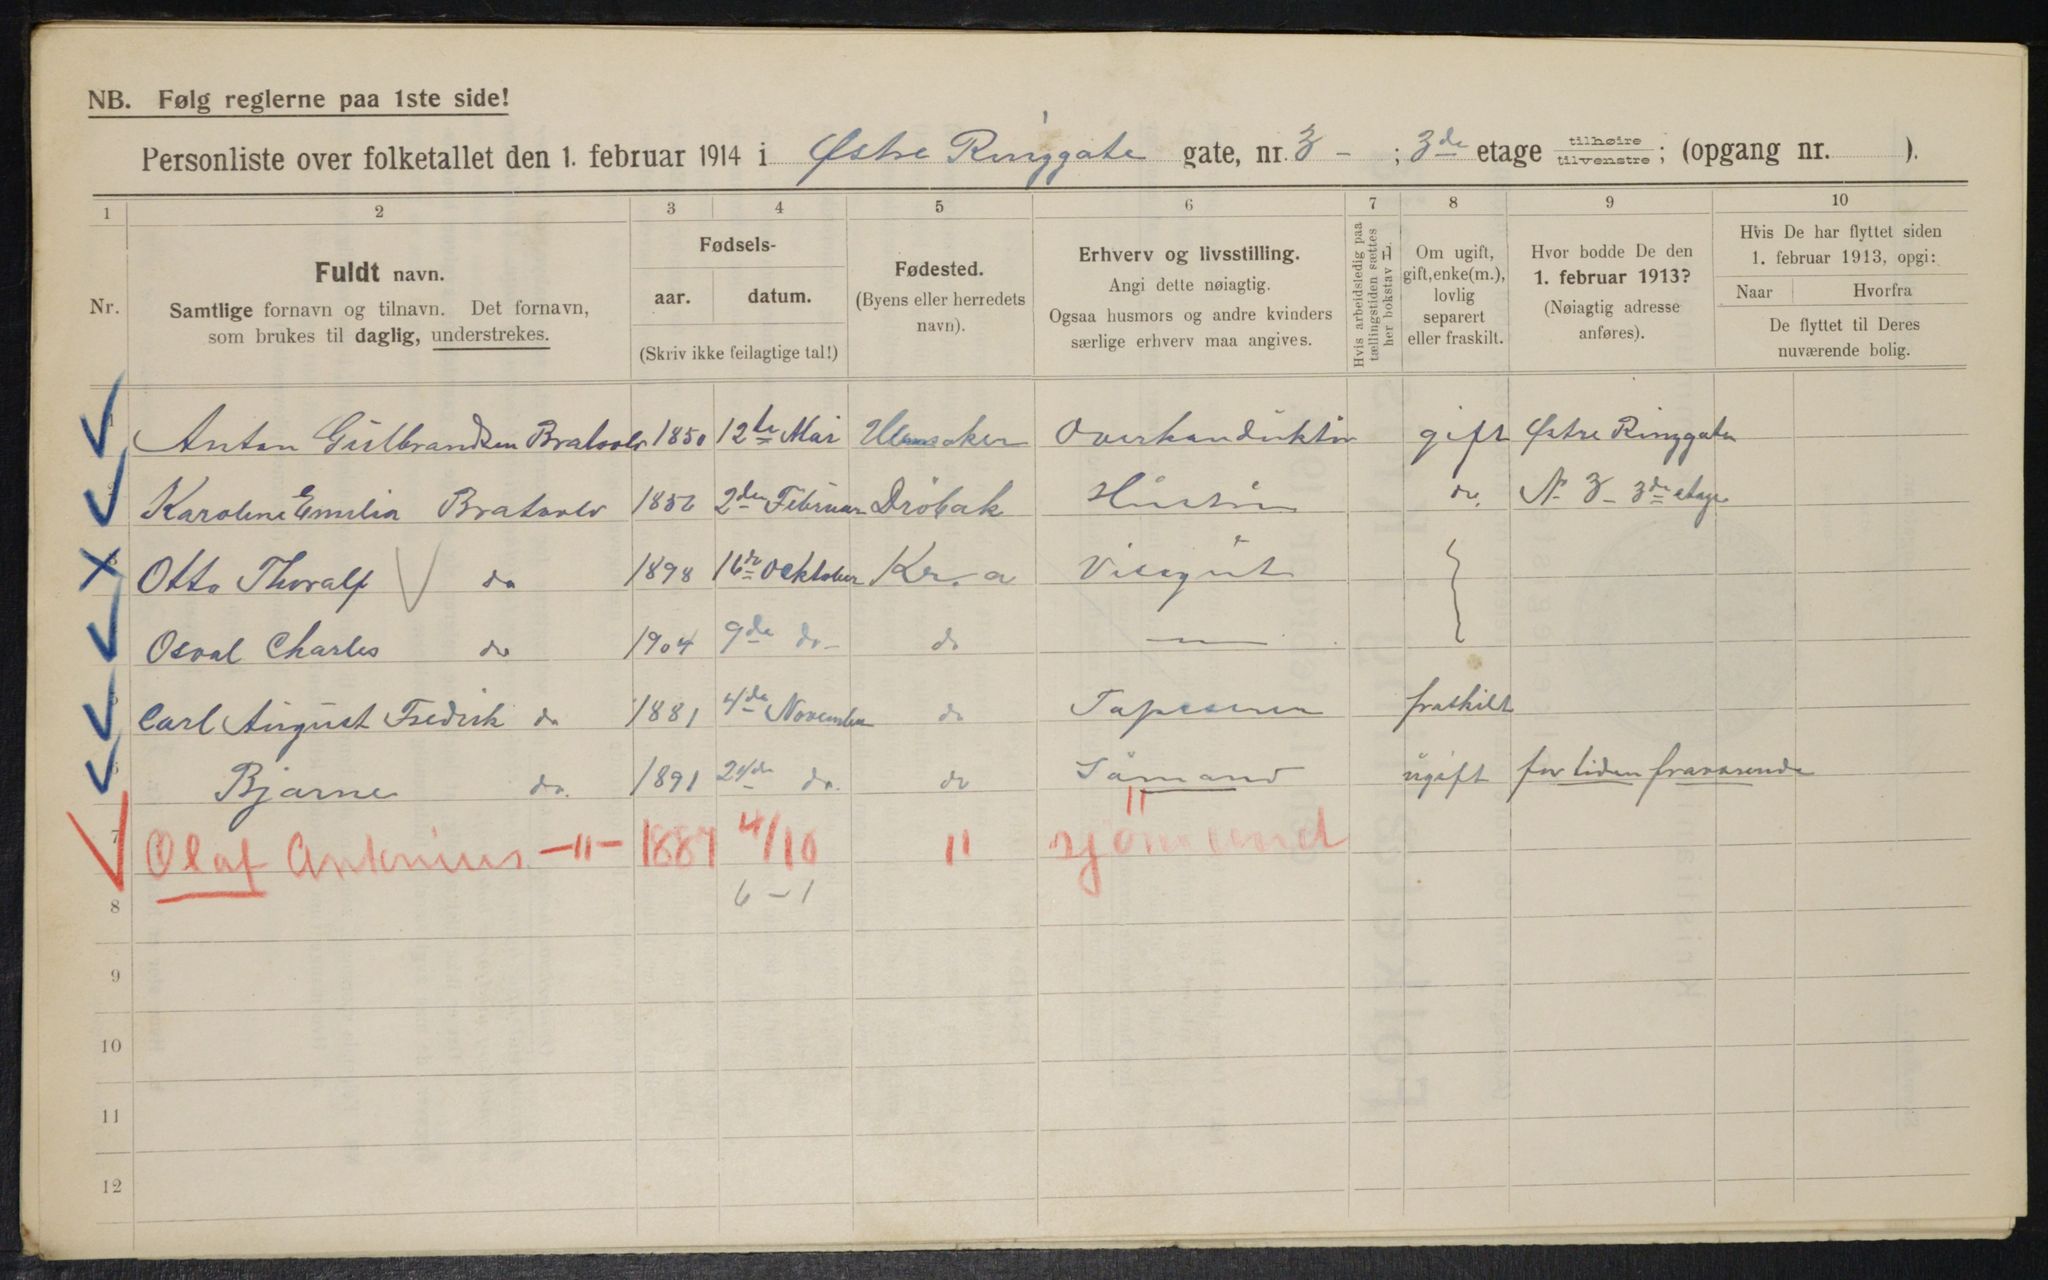 NB. Følg reglerne paa 1ste side!
Personliste over folketallet den 1. februar 1914 i Østre Ringgate gate, nr. 3 - ; 3de etage tilhøire / tilvenstre ; (opgang nr. ).
1 2 3 4 5 6 7 8 9 10
Nr.
Fuldt navn.
Samtlige fornavn og tilnavn. Det fornavn,
som brukes til daglig, understrekes.
Fødsels-
aar. datum.
(Skriv ikke feilagtige tal!)
Fødested.
(Byens eller herredets
navn).
Erhverv og livsstilling.
Angi dette nøiagtig.
Ogsaa husmors og andre kvinders
særlige erhverv maa angives.
Hvis arbeidsledig paa
tællingstiden sættes
her bokstav L
Om ugift,
gift, enke(m.),
lovlig
separert
eller fraskilt.
Hvor bodde De den
1. februar 1913?
(Nøiagtig adresse
anføres).
Hvis De har flyttet siden
1. februar 1913, opgi:
Naar Hvorfra
De flyttet til Deres
nuværende bolig.
Anton Gulbrandsen 1850 12te Mai gift Østre Ringgate
Karoline Emilia 2den Februar Dröbak do. N. 3 - 3de etage
Otto Thoralf do 1898 16de Oktober Kr.a Visegut
Osval Charles do 1904 9de do - do —
Carl August Fredrik do 1881 4de November do fraskilt
Bjarne do. 1891 do. do Sömand ugift for tiden fraværende
7 Olaf Antonius -"- 1887 4/10 " sjömand
6 - 1
8
9
10
11
12